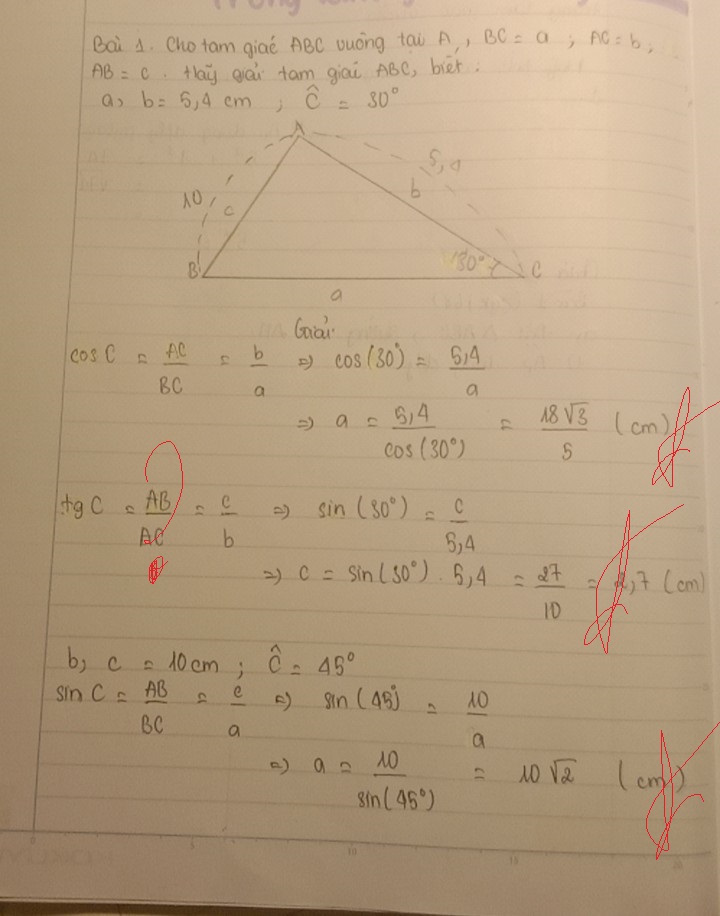 Bài 1. Cho tam giác ABC vuông tại A, BC = a ; AC = b ;
AB = c. Hãy giải tam giác ABC, biết:
a, b = 5,4 cm ; Ĉ = 30°
A
5,4
10
b
c
B
30°
C
a
Giải:
cos C = AC/BC = b/a ⇒ cos(30°) = 5,4/a
⇒ a = 5,4/cos(30°) = 18√3/5 (cm)
tg C = AB/AC = c/b ⇒ sin(30°) = c/5,4
⇒ c = sin(30°) . 5,4 = 27/10 = 2,7 (cm)
b, c = 10 cm ; Ĉ = 45°
sin C = AB/BC = c/a ⇒ sin(45°) = 10/a
⇒ a = 10/sin(45°) = 10√2 (cm)
0 5 10 15